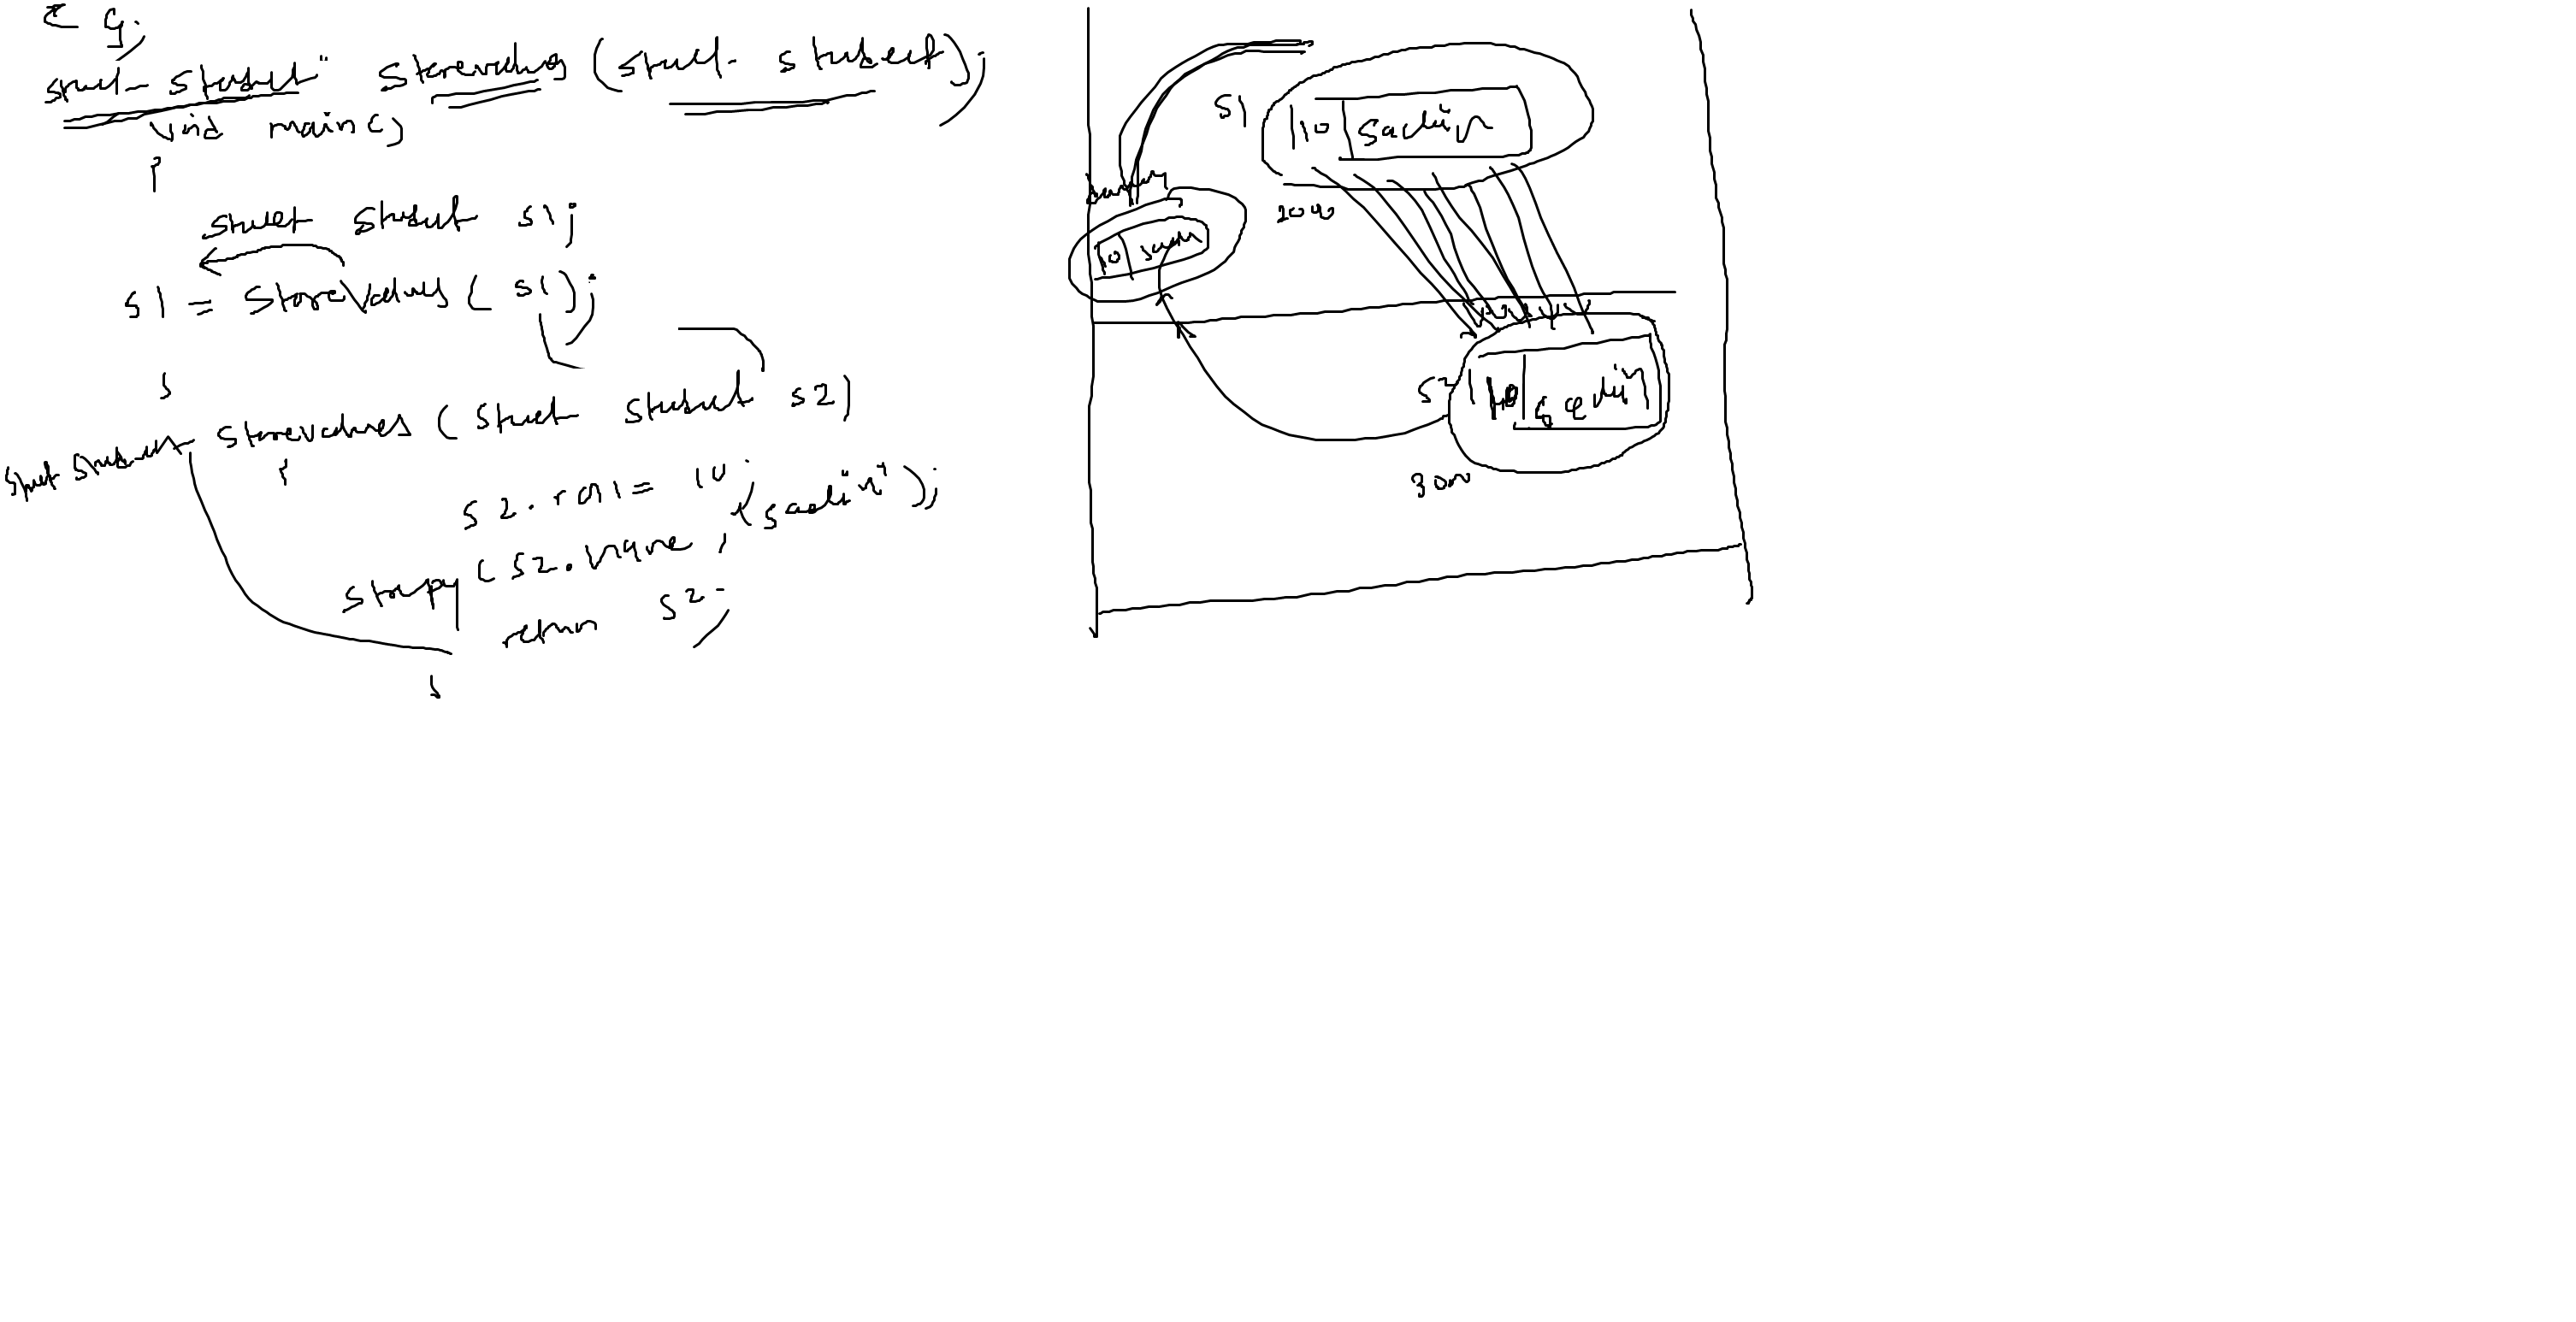 struct student storevalues (struct student);
void main()
{
struct student s1;
s1 = storeValues( s1);
}
struct student storevalues (struct student s2)
{
s2.roll = 10;
strcpy (s2.name, "sachin");
return s2;
}
s1 10 sachin
2000
temporary
10 sachin
s2 10 sachin
3000